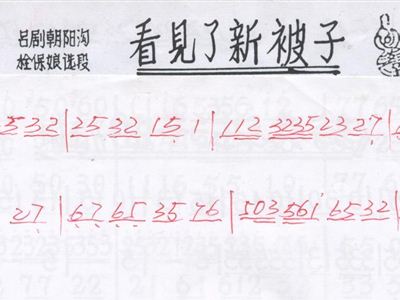 吕剧朝阳沟
栓保娘选段
看見了新被子
5 32 | 25 32 15 1 | 112 3235 23 27 |
27 | 67 65 35 76 | 503 561 65 32 |